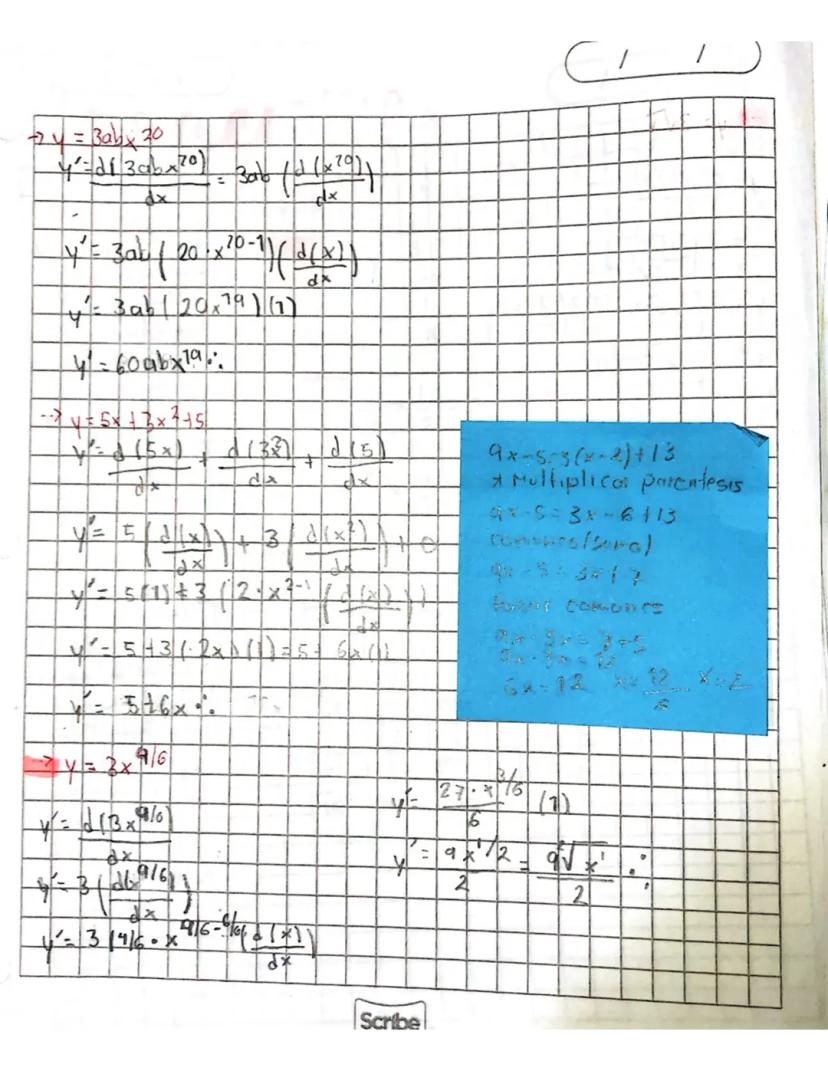 / /
→ y = 3abx20
y' = d(3abx^20)/dx = 3ab (d(x^20)/dx)
y' = 3ab (20 · x^20-1)(d(x)/dx)
y' = 3ab (20x^19)(1)
y' = 60abx^19 ∴
→ y = 5x + 3x^2 + 5
y' = d(5x)/dx + d(3x^2)/dx + d(5)/dx
y' = 5 (d(x)/dx) + 3 (d(x^2)/dx) + 0
y' = 5(1) + 3 (2 · x^2-1 (d(x)/dx))
y' = 5 + 3(·2x)(1) = 5 + 6x(1)
y' = 5 + 6x ∴
9x-5=3(x-2)+13
* Multiplicar parentesis
9x-5=3x-6+13
9x-5=3x+7
9x-3x=7+5
9x-3x=12
6x=12 x=12/6 x=2
→ y = 3x^9/6
y' = d(3x^9/6)/dx
y' = 3 (d(x^9/6)/dx)
y' = 3 (9/6 · x^9/6-6/6 (d(x)/dx)
y' = 27·x^3/6/6 (1)
y' = 9x^1/2/2 = 9²√x^1/2 ∴
Scribe